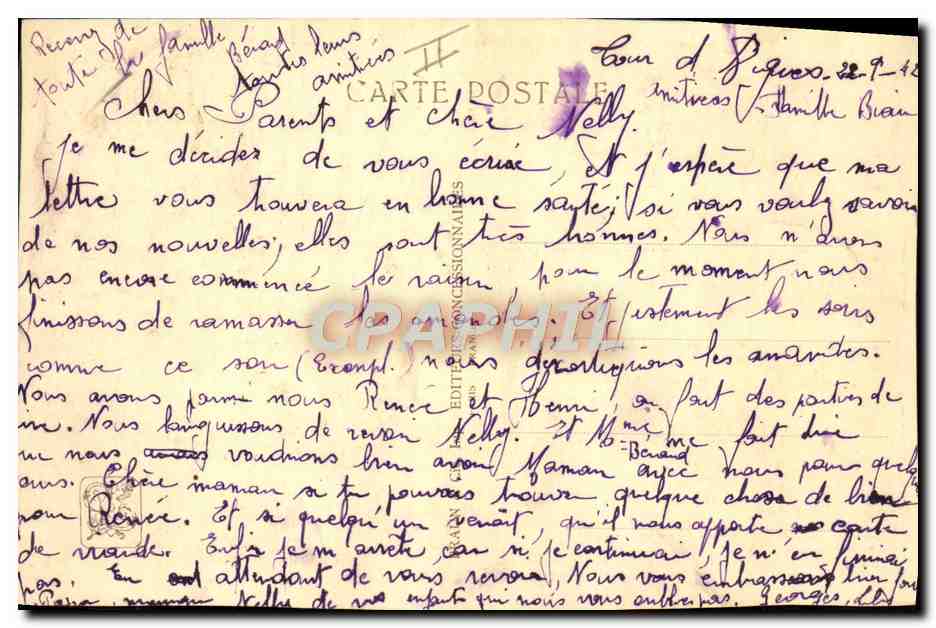 Recevez de
toute la famille
Bérard
toutes leurs
amitiés
II
Tour d'Aigues - 22-9-42
CARTE POSTALE
amitiés famille
Chers Parents et chère Nelly.
Je me décidez de vous écrire, et j'espère que ma
lettre vous trouvera en bonne santé; si vous voulez savoir
de nos nouvelles, elles sont très bonnes. Nous n'avons
pas encore commencé le raisin, pour le moment nous
finissons de ramasser les amandes. Et justement les soirs
comme ce soir (Exempl.) nous décortiquons les amandes.
Nous avons parmi nous Renée et Henri, on fait des parties de
rire. Nous languissons de revoir Nelly. Et Mme
Bérard me fait dire
que nous voudrions bien avoir Maman avec nous pour quelques
jours. Chère maman si tu pouvais trouver quelque chose de bien
pour Renée. Et si quelqu'un venait, qu'il nous apporte carte
de viande. Enfin je m'arrête car si je continuai je n'en finirai
pas. En attendant de vous revoir, Nous vous embrassons bien fort
Nelly de vos enfants qui nous vous oublies pas. Georges,
EDITEURS CONCESSIONNAIRES
BRAUN & CIE
CPAPHIL